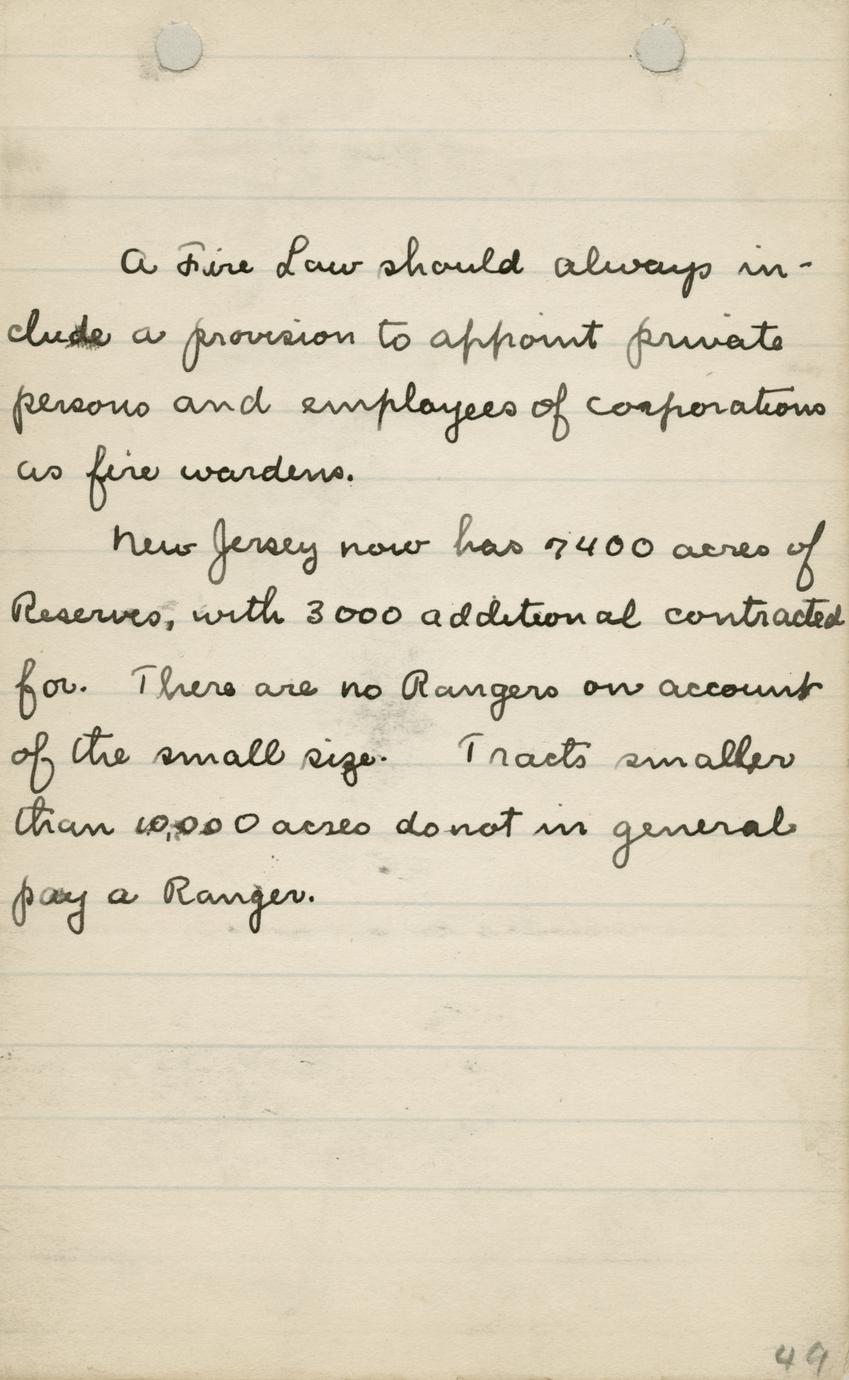 A Fire Law should always in-
clude a provision to appoint private
persons and employees of corporations
as fire wardens.
New Jersey now has 7400 acres of
Reserves, with 3000 additional contracted
for. There are no Rangers on account
of the small size. Tracts smaller
than 10,000 acres do not in general
pay a Ranger.
49